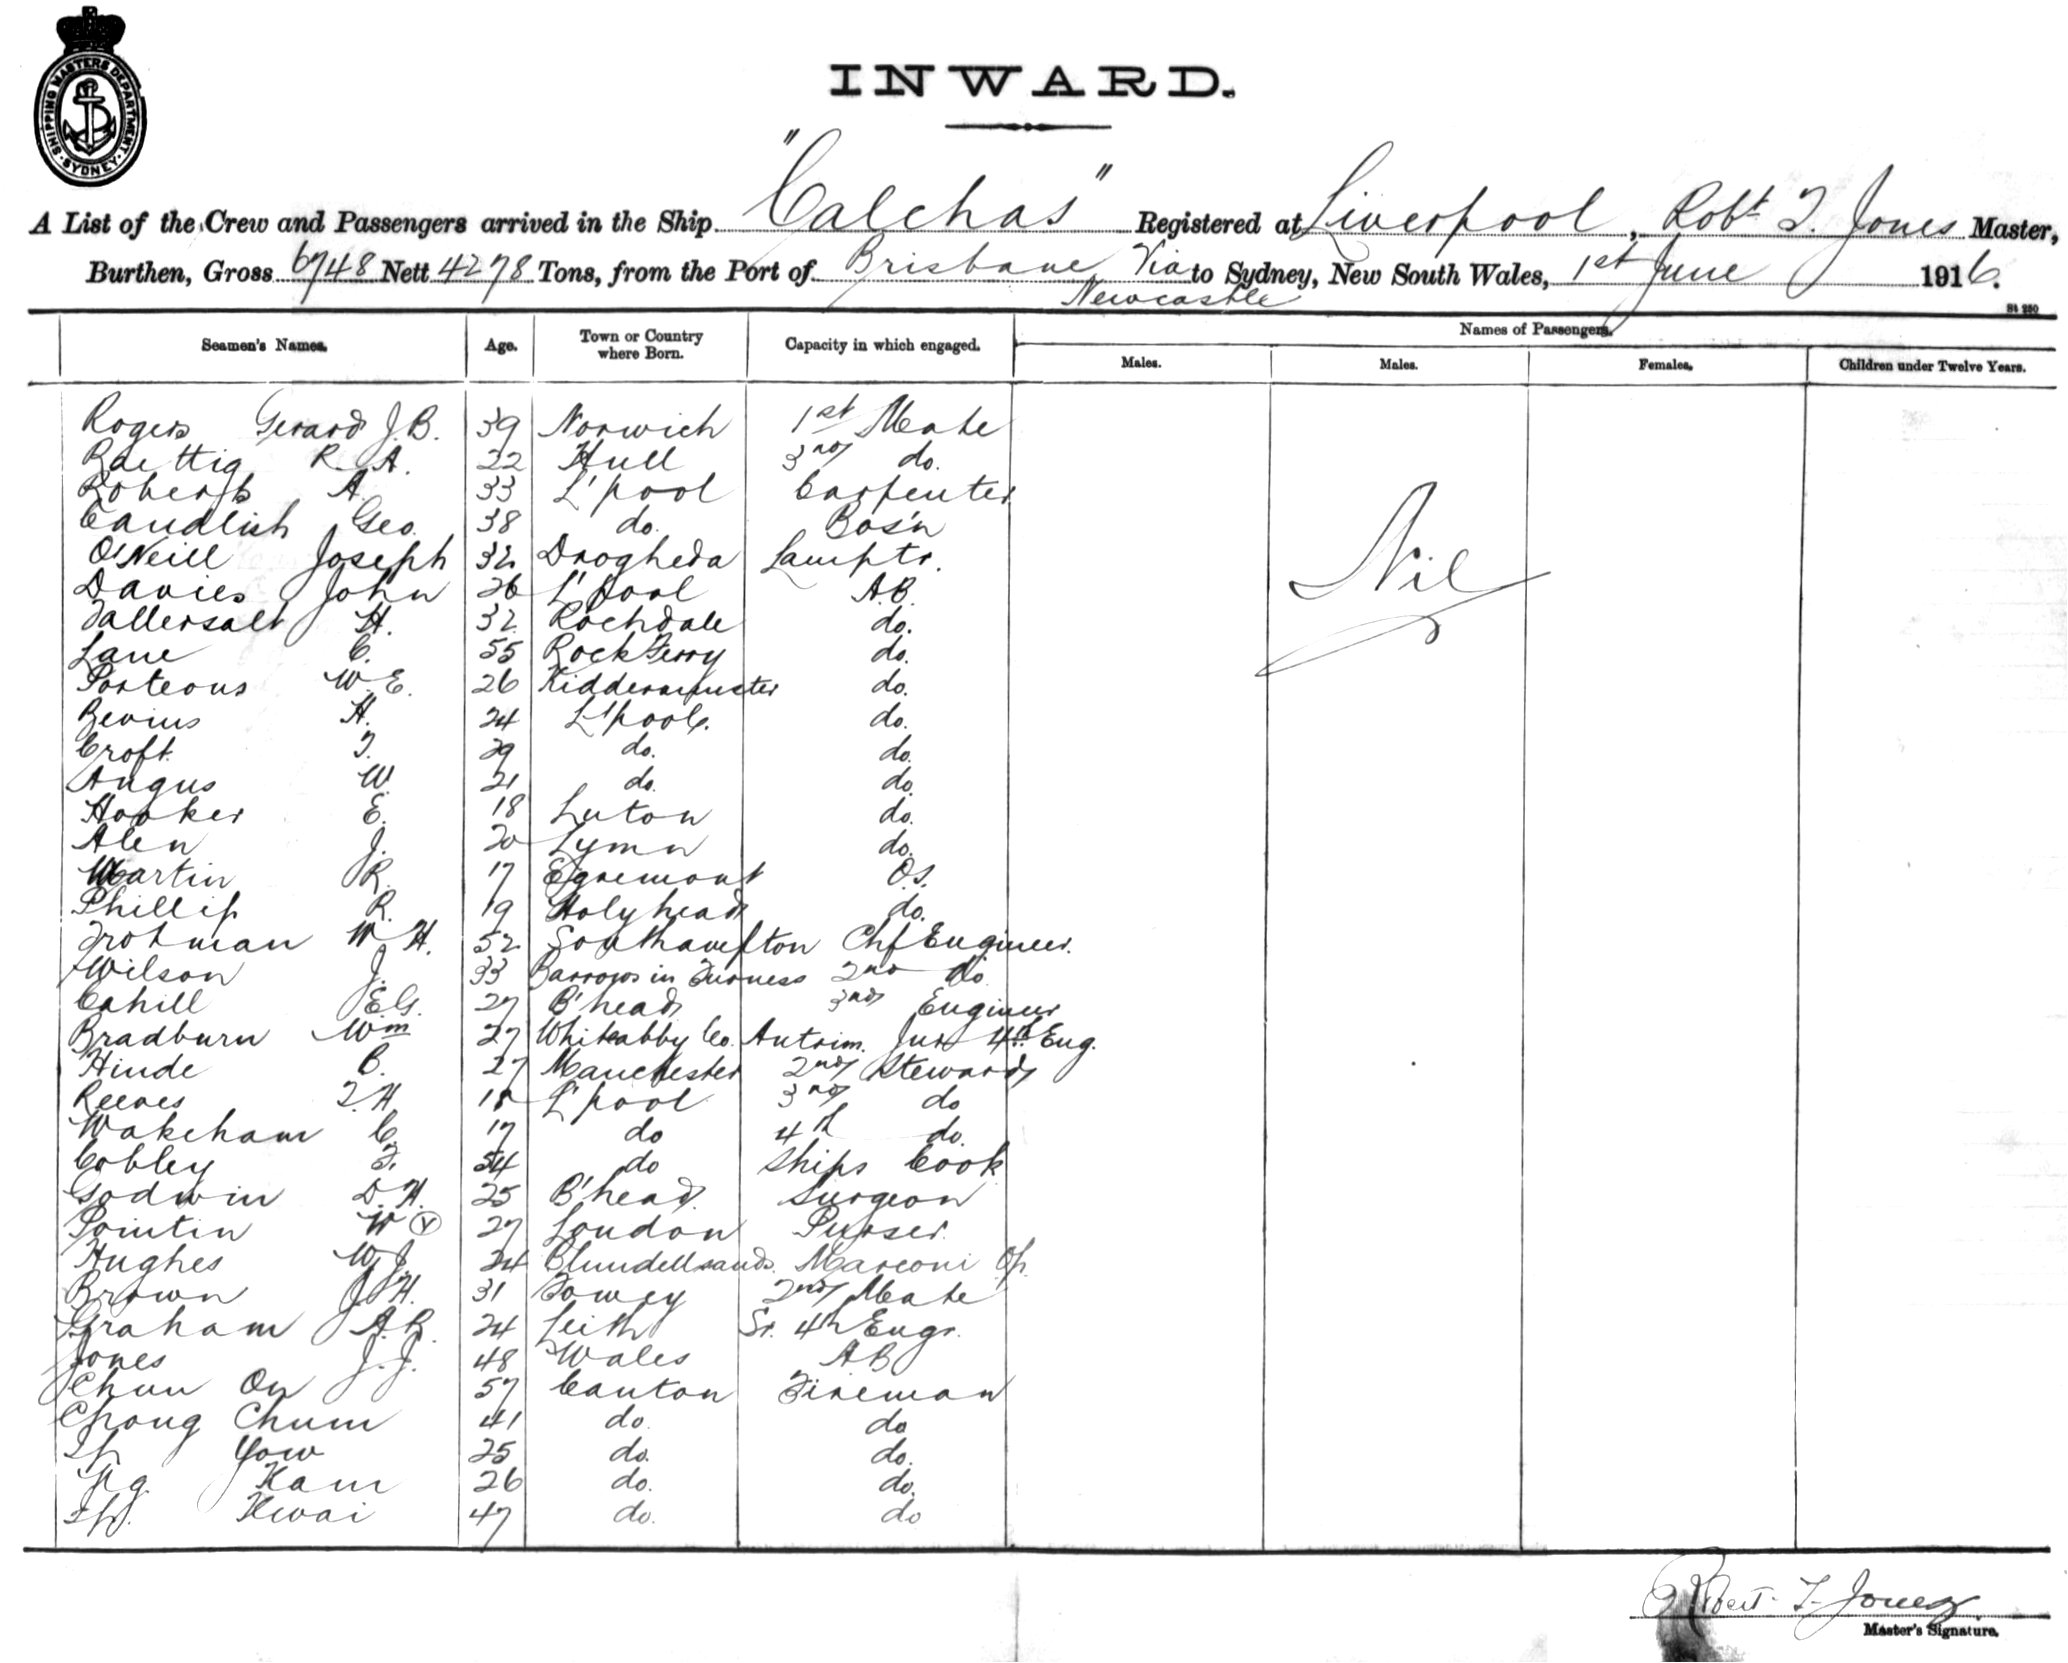 SHIPPING MASTERS DEPARTMENT. SYDNEY
INWARD.
A List of the Crew and Passengers arrived in the Ship "Calchas" Registered at Liverpool, Robt T. Jones Master,
Burthen, Gross 6748 Nett 4278 Tons, from the Port of Brisbane Via to Sydney, New South Wales, 1st June 1916.
Newcastle
St 250
Seamen's Names. Age. Town or Country where Born. Capacity in which engaged. Names of Passengers.
Males. Males. Females. Children under Twelve Years.
Rogers Gerard J.B. 39 Norwich 1st Mate
Raettig R. A. 22 Hull 3rd do.
Roberts A. 33 L'pool Carpenter
Candlish Geo. 38 do. Bos'n
O'Neill Joseph 32 Drogheda Lamptr.
Davies John 26 L'pool A.B.
Tallersalt H. 32 Rochdale do.
Lane C. 55 Rock Ferry do.
Porteous W.E. 26 Kidderminster do.
Bevins H. 24 L'pool. do.
Croft T. 29 do. do.
Angus W. 21 do. do.
Hooker E. 18 Luton do.
Alen J. 20 Lymn do.
Martin R. 17 Egremont O.S.
Phillip R. 19 Holyhead do.
Trotman W H. 52 Southampton Chf Engineer.
Wilson J. 33 Barrow in Furness 2nd do
Cahill E.G. 27 B'head 3rd Engineer
Bradburn Wm 27 Whiteabby Co. Antrim. Jun 4th Eng.
Hinde B. 27 Manchester 2nd Steward
Reeves T.H. 18 L'pool 3rd do
Wakeham C. 17 do 4th do.
Cobley F. 54 do Ships Cook
Godwin D.H. 25 B'head. Surgeon
Pointin W Y 27 London Purser
Hughes W J. 24 Blundellsands. Marconi Op.
Brown J.H. 31 Fowey 2nd Mate
Graham A.R. 24 Leith Sr. 4th Engr.
Jones J.J. 48 Wales A B
Chun On 57 Canton Fireman
Chong Chum 41 do. do
Ip Yow 25 do. do.
Ng. Kam 26 do. do.
Ip. Kwai 47 do. do
Nil
Robert T. Jones.
Master's Signature.